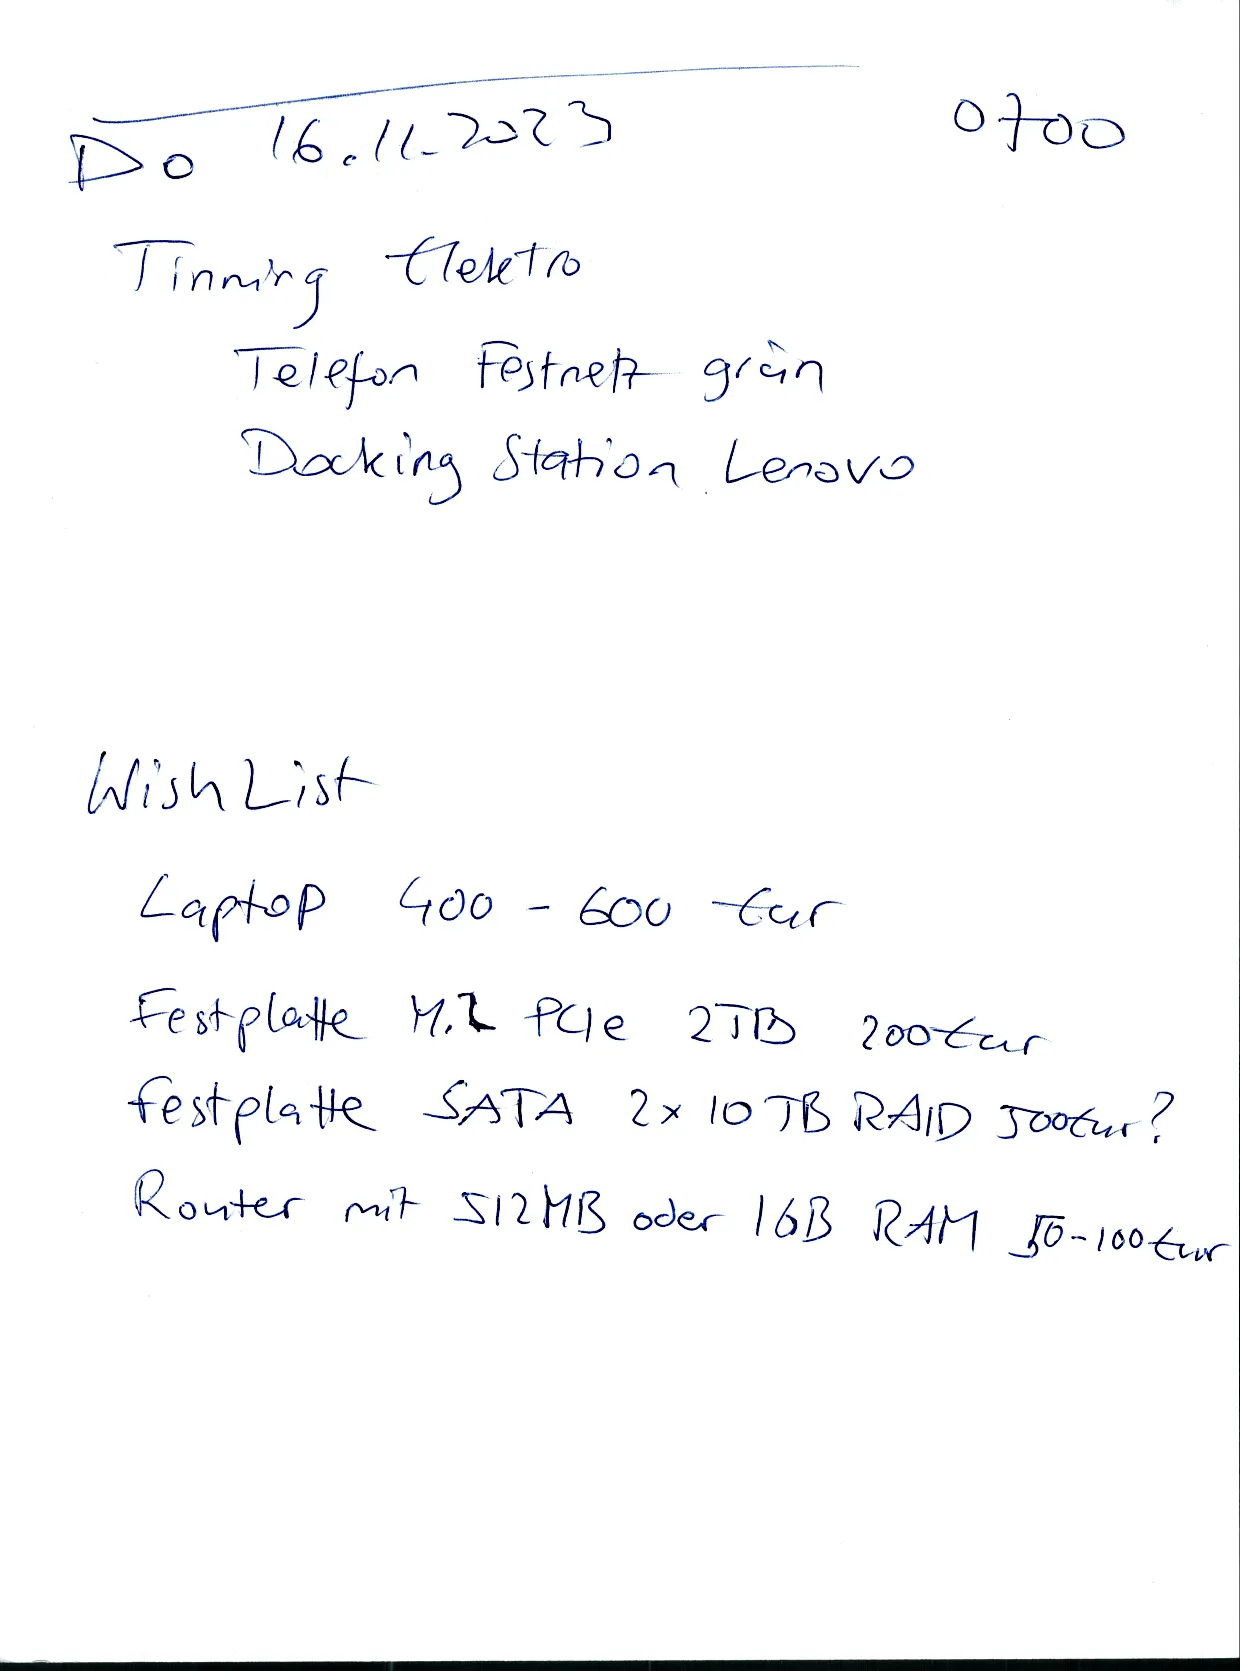 Do 16.11.2023 0700
Tinning Elektro
Telefon Festnetz grün
Docking Station Lenovo
WishList
Laptop 400 - 600 Eur
Festplatte M.2 PCIe 2TB 200Eur
Festplatte SATA 2x 10TB RAID 500Eur?
Router mit 512MB oder 1GB RAM 50-100Eur